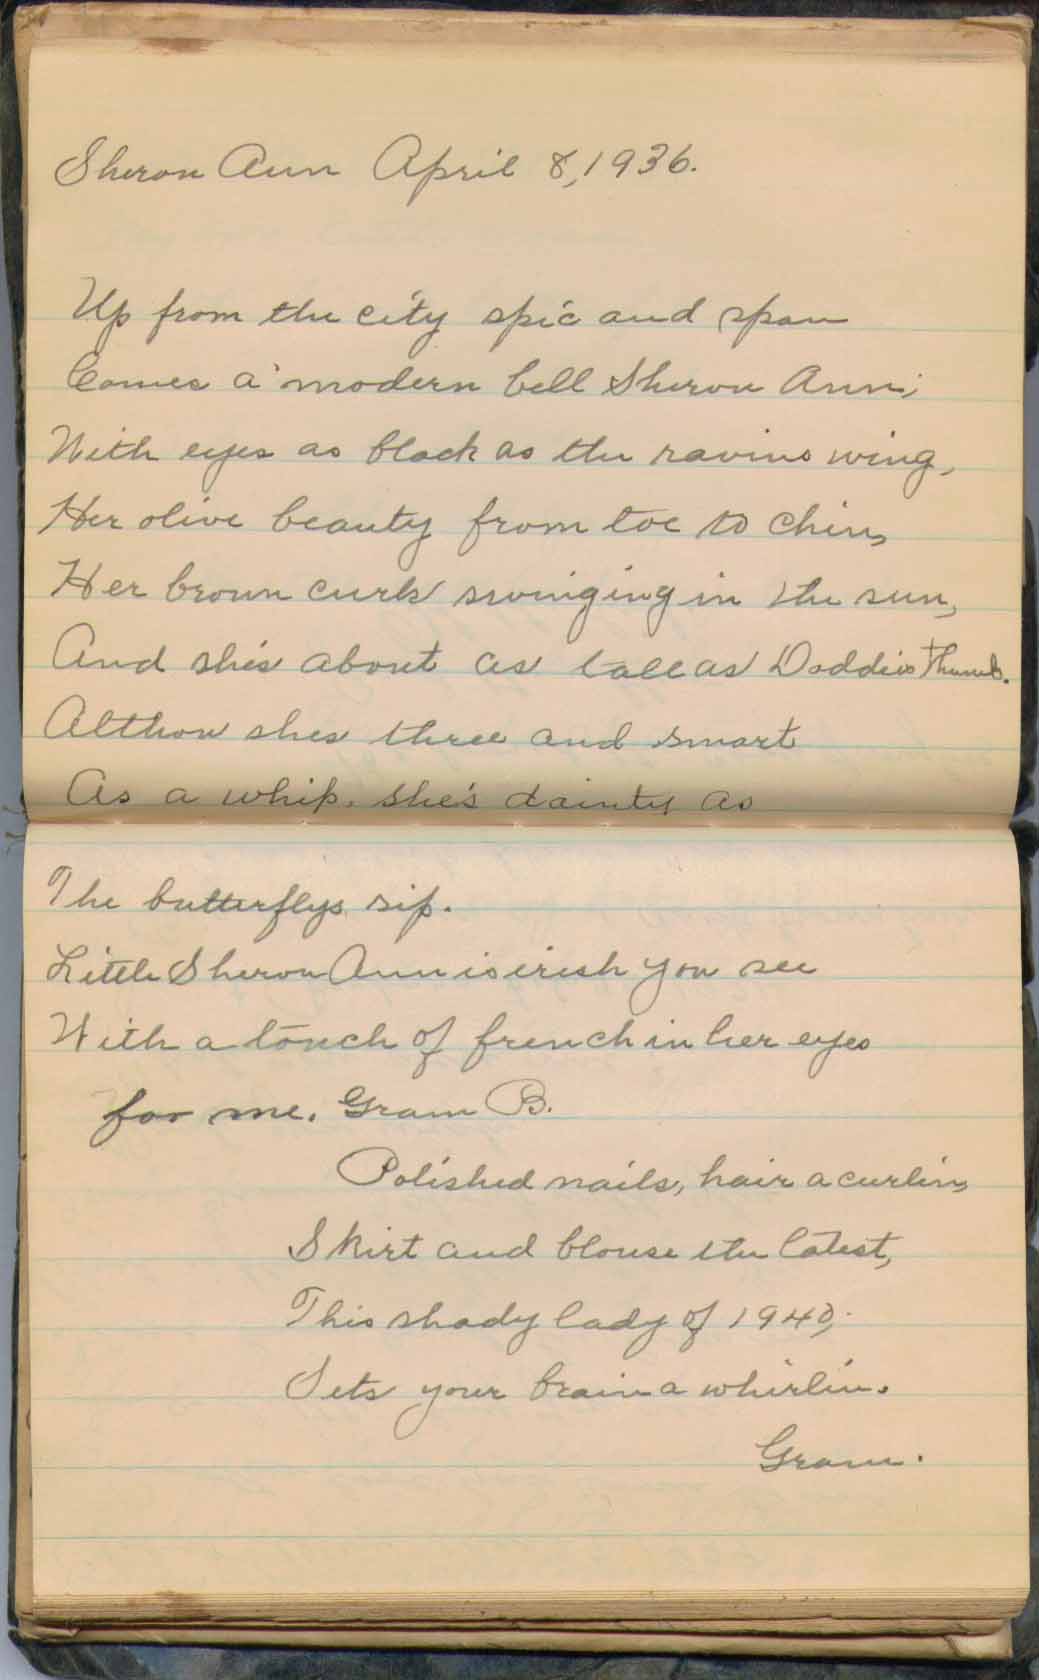 Sheron Ann April 8, 1936.
Up from the city spic and span
Comes a modern bell Sheron Ann;
With eyes as black as the ravins wing,
Her olive beauty from toe to chin,
Her brown curls swinging in the sun,
And she's about as tall as Daddies thumb.
Althow shes three and smart
As a whip. she's dainty as
The butterflys sip.
Little Sheron Ann is irish you see
With a touch of french in her eyes
for me. Gram B.
Polished nails, hair a curlin,
Skirt and blouse the latest,
This shady lady of 1940,
Sets your brain a whirlin.
Gram.